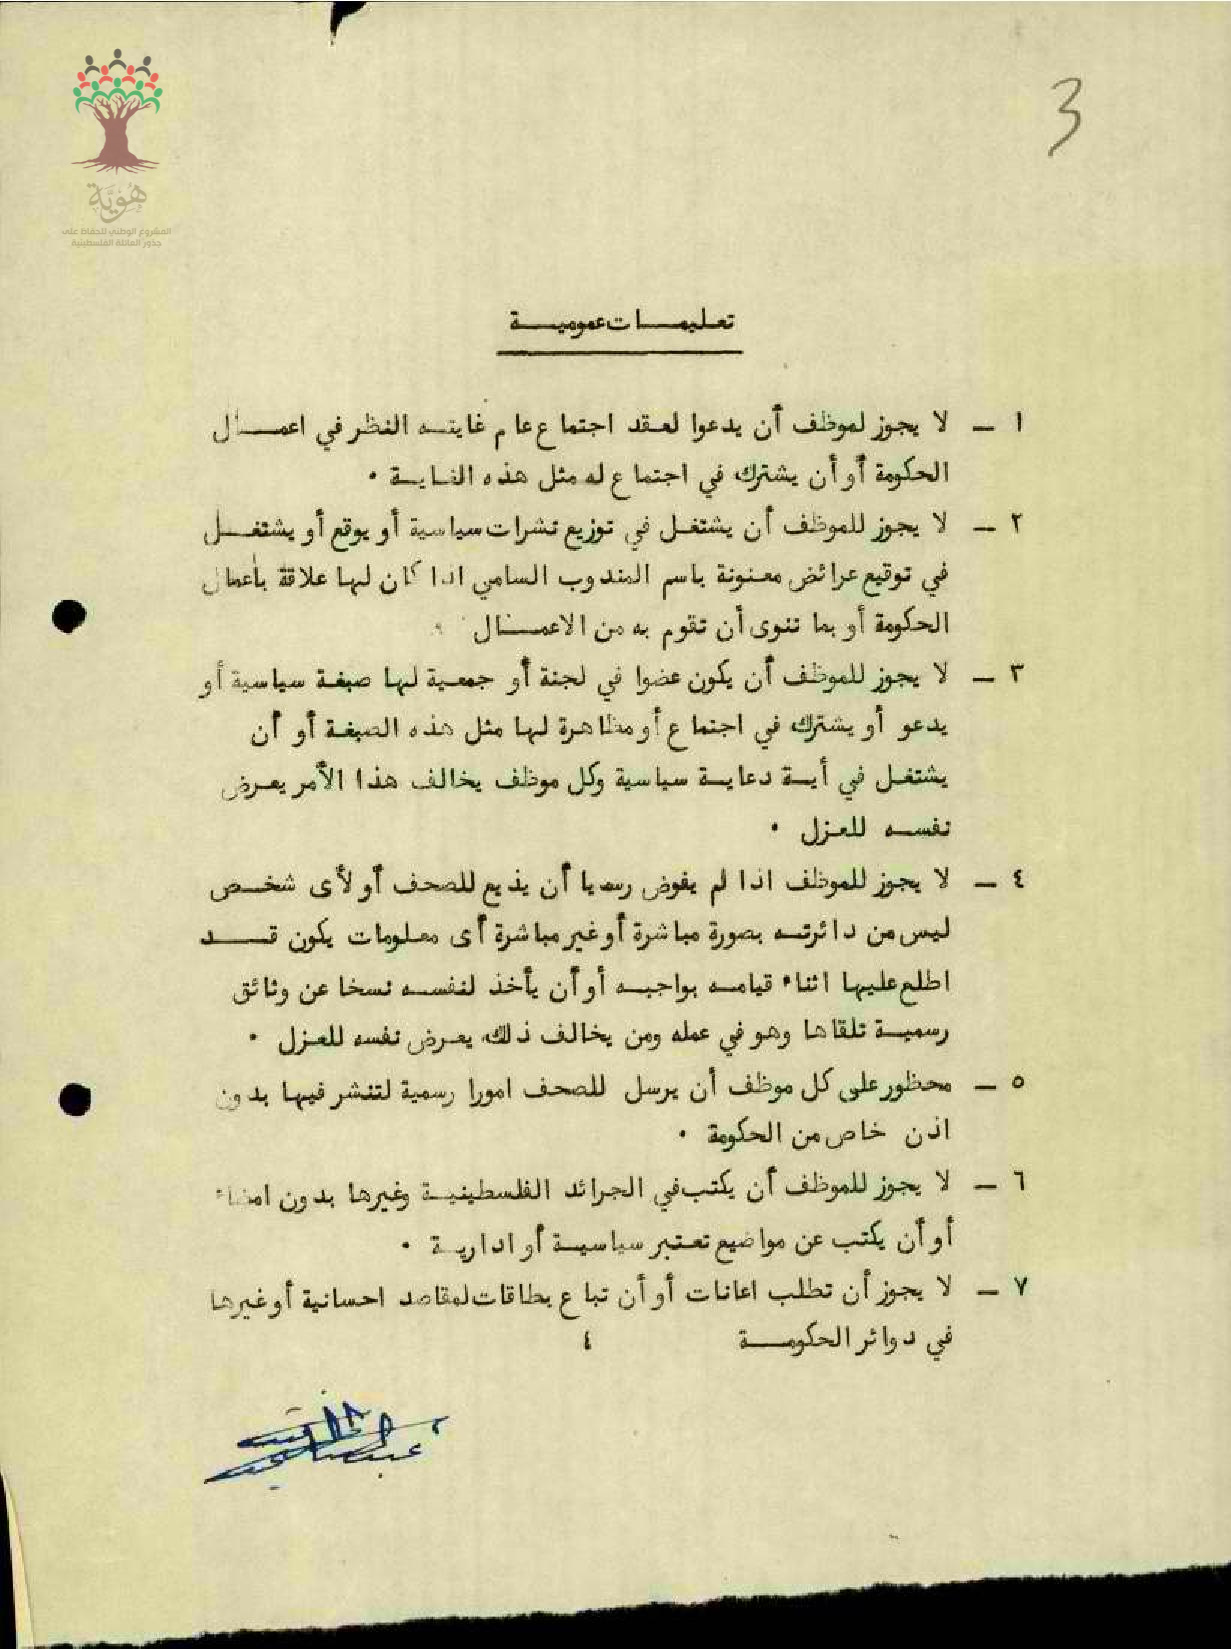 3
هوية
المشروع الوطني للحفاظ على
جذور العائلة الفلسطينية
تعليمات عمومية
١ - لا يجوز لموظف أن يدعوا لعقد اجتماع عام غايته النظر في اعمال
الحكومة أو أن يشترك في اجتماع له مثل هذه الغاية .
٢ - لا يجوز للموظف أن يشتغل في توزيع نشرات سياسية أو يوقع أو يشتغل
في توقيع عرائض معنونة باسم المندوب السامي اذا كان لها علاقة بأعمال
الحكومة أو بما تنوى أن تقوم به من الاعمال .
٣ - لا يجوز للموظف أن يكون عضوا في لجنة أو جمعية لها صبغة سياسية أو
يدعو أو يشترك في اجتماع أو مظاهرة لها مثل هذه الصبغة أو أن
يشتغل في أية دعاية سياسية وكل موظف يخالف هذا الأمر يعرض
نفسه للعزل .
٤ - لا يجوز للموظف اذا لم يفوض رسميا أن يذيع للصحف أو لأى شخص
ليس من دائرته بصورة مباشرة أو غير مباشرة أى معلومات يكون قد
اطلع عليها اثناء قيامه بواجبه أو أن يأخذ لنفسه نسخا عن وثائق
رسمية تلقاها وهو في عمله ومن يخالف ذلك يعرض نفسه للعزل .
٥ - محظور على كل موظف أن يرسل للصحف امورا رسمية لتنشر فيها بدون
اذن خاص من الحكومة .
٦ - لا يجوز للموظف أن يكتب في الجرائد الفلسطينية وغيرها بدون امضاء
أو أن يكتب عن مواضيع تعتبر سياسية أو ادارية .
٧ - لا يجوز أن تطلب اعانات أو أن تباع بطاقات لمقاصد احسانية أو غيرها
في دوائر الحكومة ٤